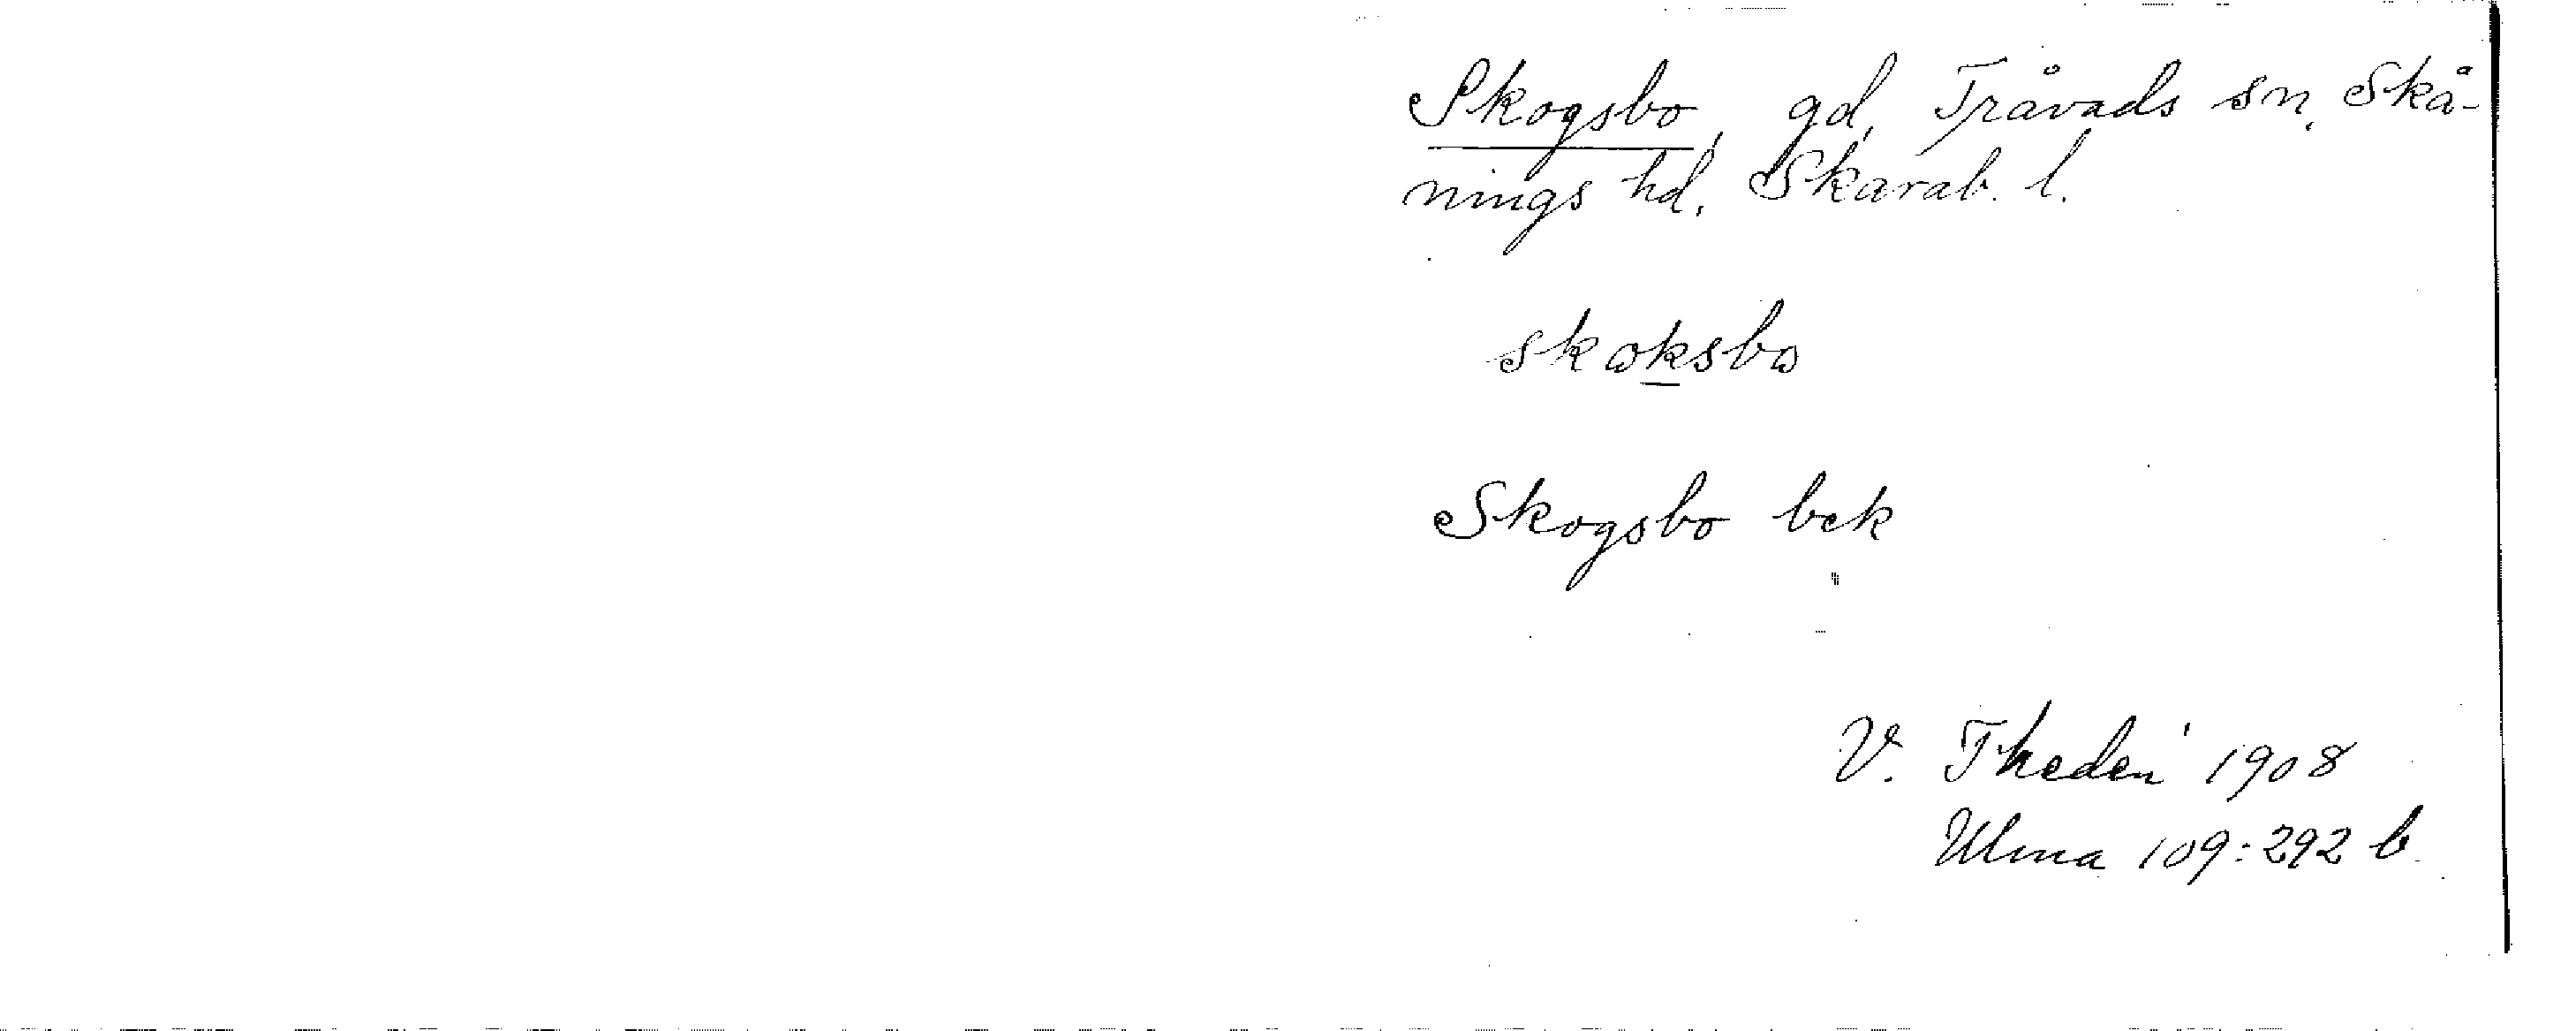 Skogsbo, gd, Tråvads sn, Skå-
nings hd, Skarab. l.
skoksbo
Skogsbo bek
V. Thedén 1908
Ulma 109:292 b